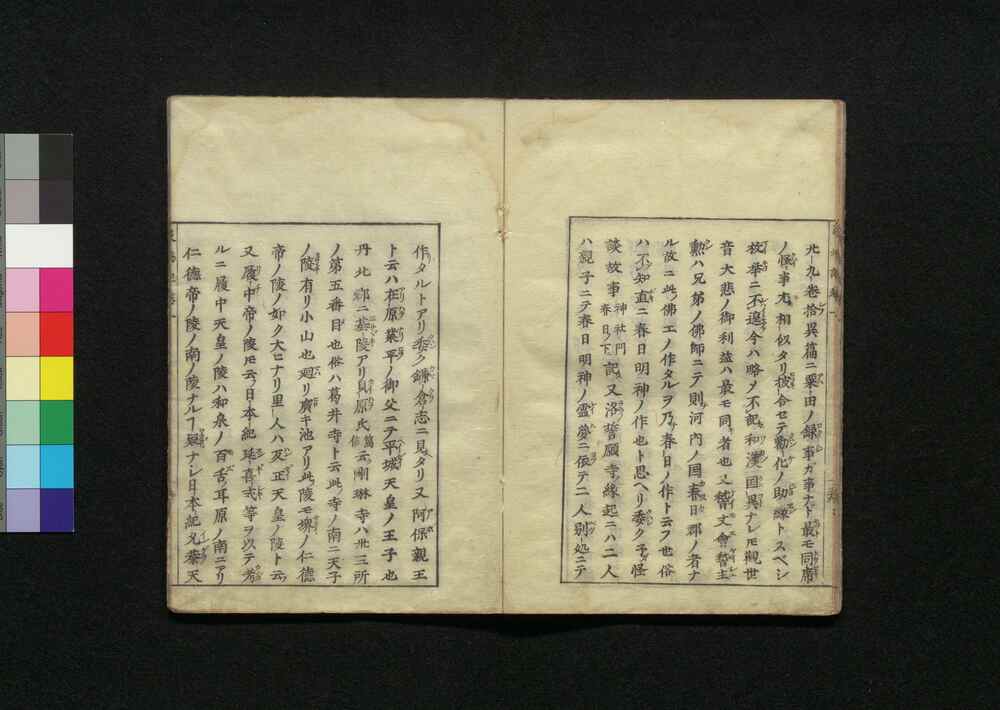 九巻拾異篇ニ粟田ノ録事ガ事ナト最モ同席
ノ怪事尤相似タリ披合セテ勸化ノ助縁トスベシ
枚挙ニ不遑今ハ略ソ不記和漢国異ナレモ觀世
音大悲ノ御利益ハ最モ同キ者也又稽文會稽主
勲ハ兄弟ノ佛師ニテ則河内ノ国春日郡ノ者ナ
ル故ニ此佛工ノ作タルヲ乃春日ノ作ト云フ也俗
ハ不知直ニ春日明神ノ作也ト思ヘリ委ク予怪
談故事神社門春日ノ下記ス又洛誓願寺縁起ニハ二人
ハ親子ニテ春日明神ノ霊夢ニ依テ二人別処ニテ
作タルトアリ委ク鎌倉志ニ見タリ又阿保親王
ト云ハ在原業平ノ御父ニテ平城天皇ノ王子也
丹北郡ニ墓陵アリ貝原氏篇信云剛琳寺ハ卅三所
ノ第五番目也俗ハ葛井寺ト云此寺ノ南ニ天子
ノ陵有リ小山也廻リ廣キ池アリ此陵モ堺ノ仁德
帝ノ陵ノ如ク大ヒナリ里人ハ反正天皇ノ陵ト云
又履中帝ノ陵モ云フ日本紀延喜式等ヲ以テ考
ルニ履中天皇ノ陵ハ和泉ノ百舌耳原ノ南ニアリ
仁徳帝ノ陵ノ南ノ陵ナルヿ疑ナシ日本紀允恭天